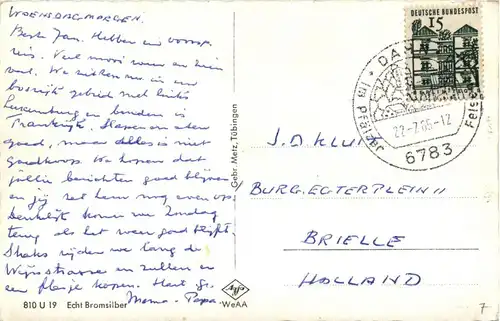 WOENSDAGMORGEN.
Beste Jan. Hebben een voorsp.
reis. Veel moois weer en hier
veel. We zitten nu in een
bosrijk gebied met links
Luxemburg en beneden is
Frankrijk. Slapen en eten
goed, maar alles is niet
goedkoop. We hopen dat
jullie berichten goed blijven
en jij zet hem nog even op.
Denkelijk komen we Zondag
terug als het weer goed blijft.
Straks rijden we lang de
Wijnstrasse en zullen er
een flesje kopen. Hart. gr.
Mama - Papa
810 U 19 Echt Bromsilber
Gebr. Metz, Tübingen
Agfa
WeAA
DEUTSCHE BUNDESPOST
15
DAHN
22-7.65-12
6783
J.D. KLUI
BURG. EGTERPLEIN 11
BRIELLE
HOLLAND
7